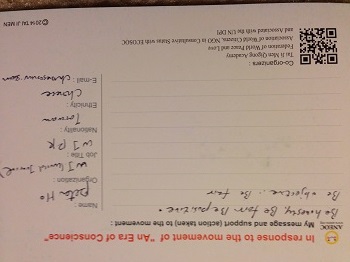 ANEOC
In response to the movement of "An Era of Conscience"
My message and support (action taken) to the movement :
Be honesty. Be fair Be positive.
Be objective. Be fair
Name : Peter Ho
Organization :
Job Title :
Nationality : Taiwan
Ethnicity : Chinese
E-mail :
Co-organizers
Tai Ji Men Qigong Academy
Federation of World Peace and Love
Association of World Citizens, NGO in Consultative Status with ECOSOC
and Associated with the UN DPI
© 2014 TAI JI MEN